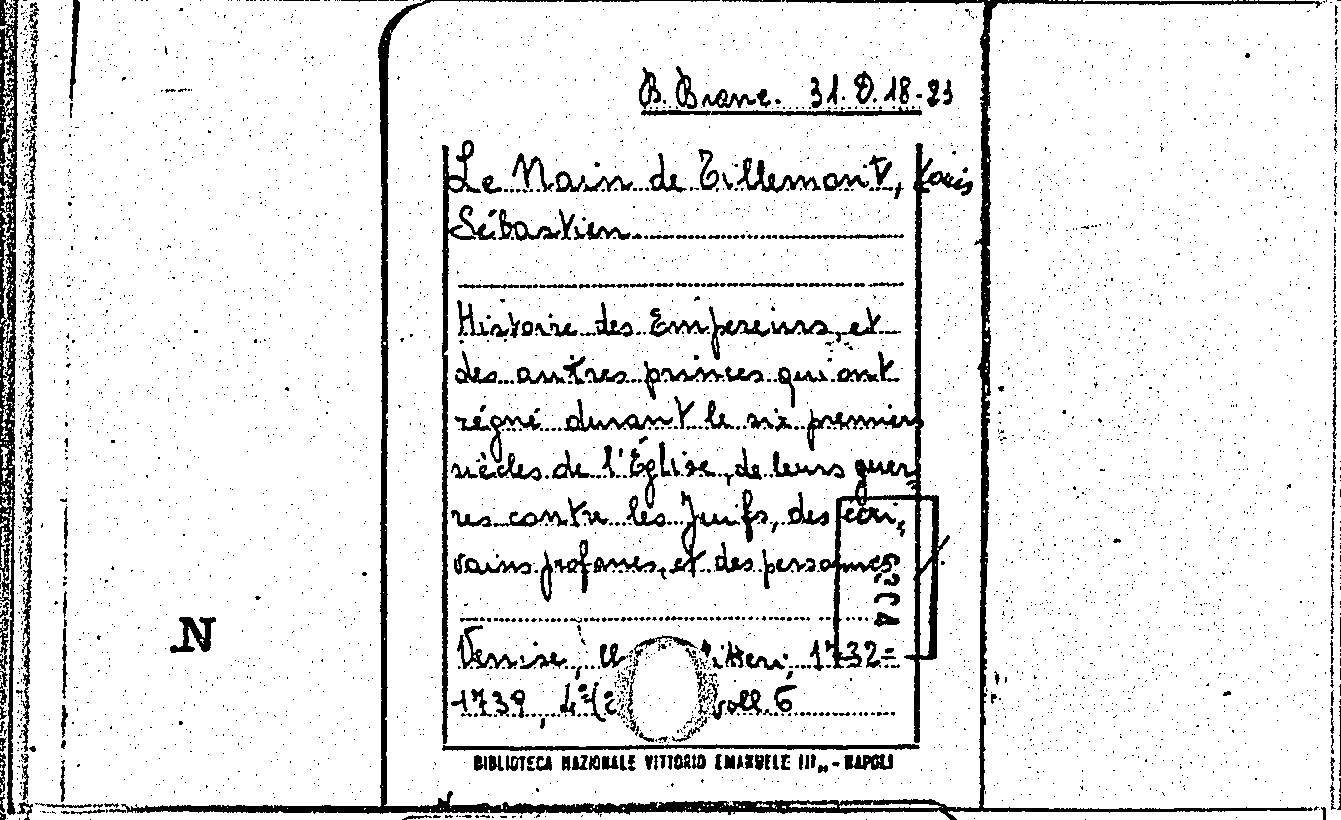 B. Branc. 31. D. 18-23
Le Nain de Tillemont, Louis
Sébastien
Histoire des Empereurs, et
des autres princes qui ont
régné durant le six premiers
siècles de l'Église, de leurs guer,
res contre les Juifs, des écri,
vains profanes, et des personnes
Venise, 1732=
1739, 4° voll. 6
N
BIBLIOTECA NAZIONALE VITTORIO EMANUELE III,, - NAPOLI